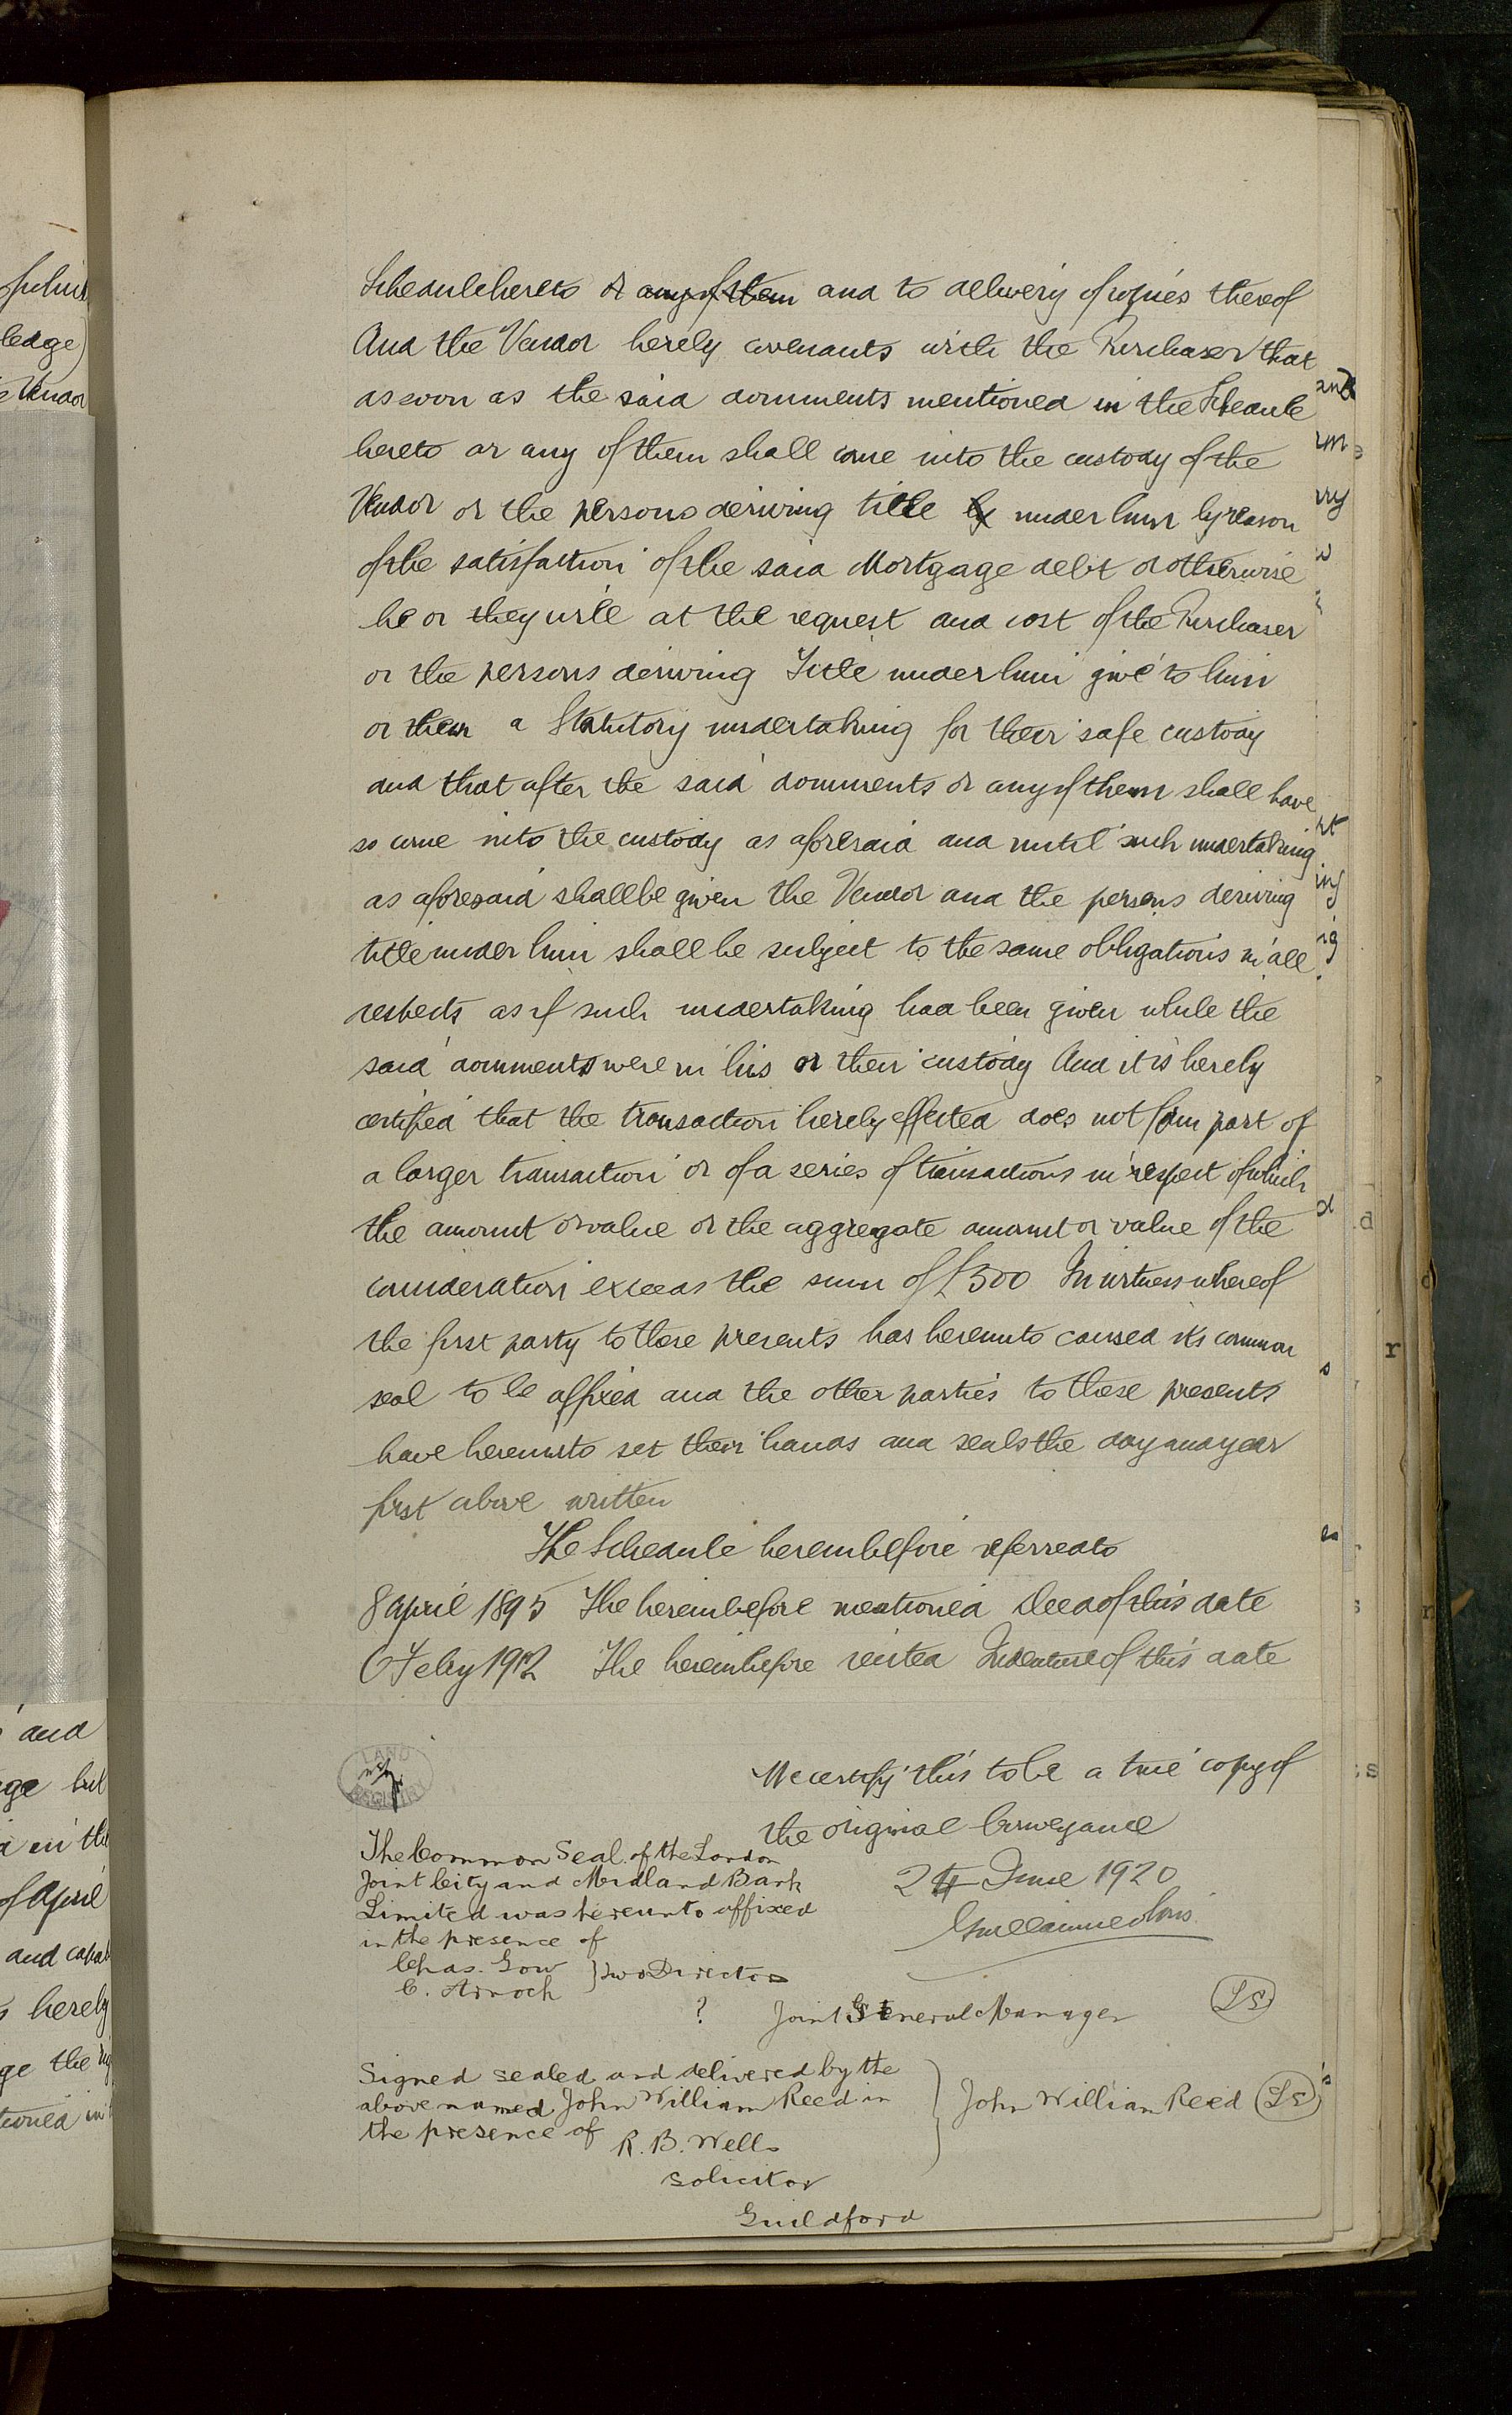 Schedule hereto or any of them and to delivery of copies thereof
And the Vendor hereby covenants with the Purchaser that
as soon as the said documents mentioned in the Schedule
hereto or any of them shall come into the custody of the
Vendor or the persons deriving title by under him by reason
of the satisfaction of the said Mortgage debt or otherwise
he or they will at the request and cost of the Purchaser
or the persons deriving Title under him give to him
or them a Statutory undertaking for their safe custody
and that after the said documents or any of them shall have
so come into the custody as aforesaid and until such undertaking
as aforesaid shall be given the Vendor and the persons deriving
title under him shall be subject to the same obligations in all
respects as if such undertaking had been given while the
said documents were in his or their custody And it is hereby
certified that the transaction hereby effected does not form part of
a larger transaction or of a series of transactions in respect of which
the amount or value or the aggregate amount or value of the
consideration exceeds the sum of £500 In witness whereof
the first party to these presents has hereunto caused its common
seal to be affixed and the other parties to these presents
have hereunto set their hands and seals the day and year
first above written
The Schedule hereinbefore referred to
8 April 1895 The hereinbefore mentioned Deed of this date
6 Feby 1912 The hereinbefore recited Indenture of this date
LAND
REGISTRY
We certify this to be a true copy of
the original Conveyance
24 June 1920
The Common Seal of the London
Joint City and Midland Bank
Limited was hereunto affixed
in the presence of
Chas. Gow } two Directors
C.
? Joint General Manager LS
Signed sealed and delivered by the
above named John William Reed in
the presence of } John William Reed LS
R. B. Wells
solicitor
Guildford